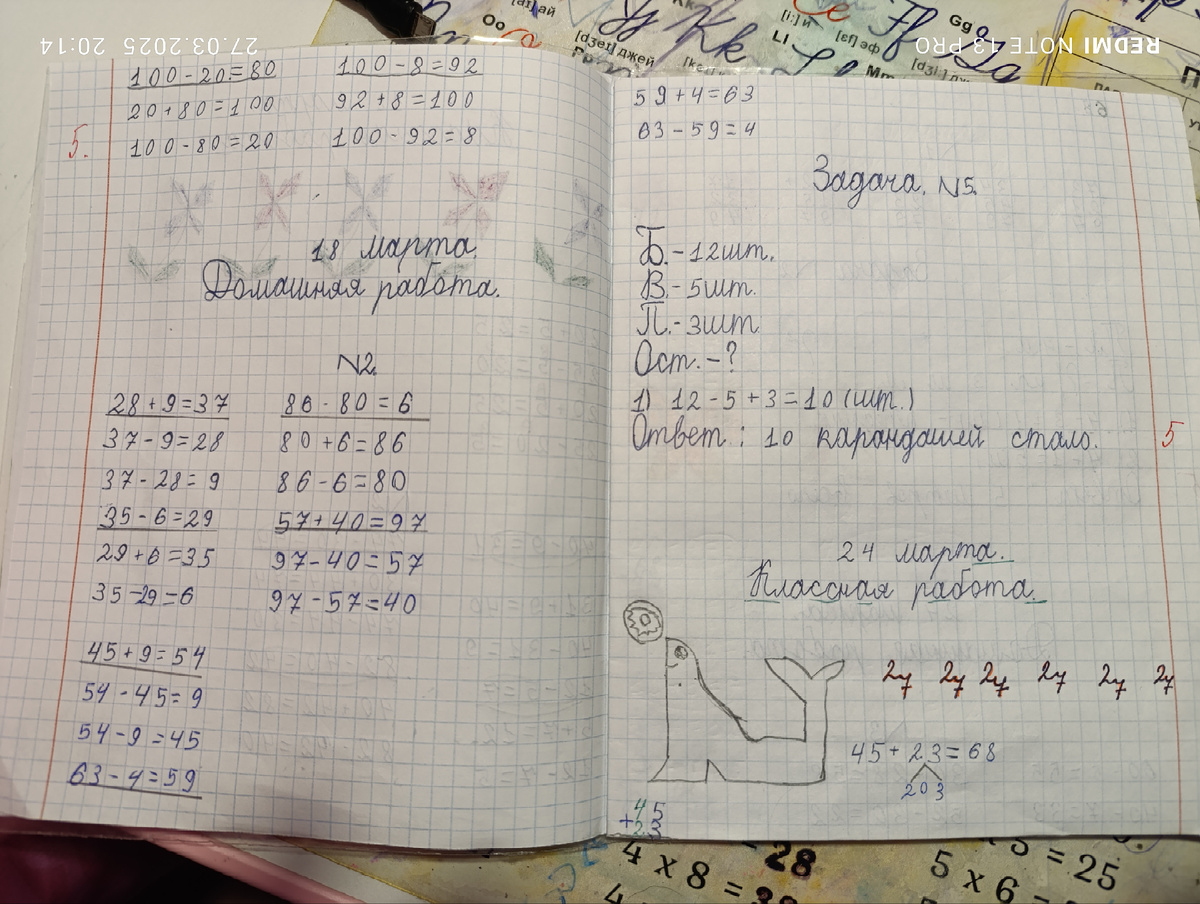 27.03.2025 20:14
REDMI NOTE 13 PRO
[aɪ] ай
Oo
[dʒeɪ] джей
Kk
Kk
[i:] и
Ll
[ef] эф
Ff
Gg
Mm
100-20=80 100-8=92
20+80=100 92+8=100
5. 100-80=20 100-92=8
18 марта.
Домашняя работа.
N2.
28+9=37 86-80=6
37-9=28 80+6=86
37-28=9 86-6=80
35-6=29 57+40=97
29+6=35 97-40=57
35-29=6 97-57=40
45+9=54
54-45=9
54-9=45
63-4=59
59+4=63
63-59=4
Задача. N5.
Б.-12шт.
В.-5шт.
П.-3шт
Ост.-?
1) 12-5+3=10(шт.)
Ответ: 10 карандашей стало. 5
24 марта.
Классная работа.
27 27 27 27 27 27
45+23=68
20 3
45
+23
28
4 x 8 = 3
5 = 25
5 x 6 =